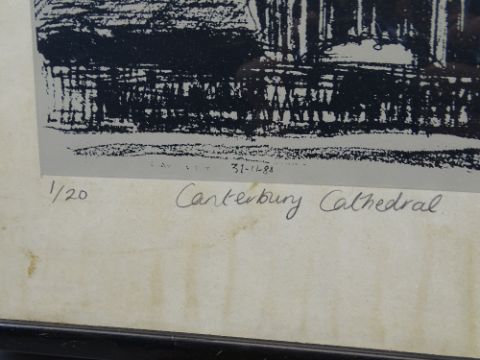 31-11-88
1/20 Canterbury Cathedral.